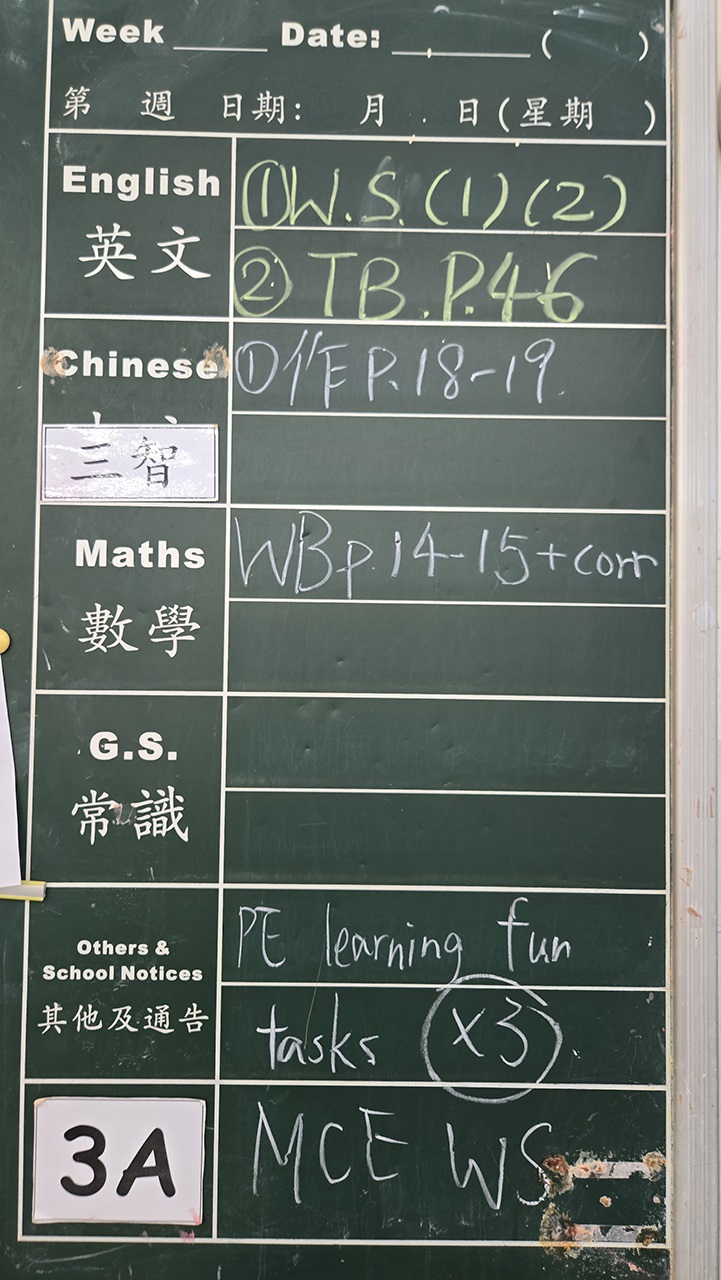 Week ____ Date: ______ ( )
第 週 日期: 月 日(星期 )
English
英文
①W.S.(1)(2)
② TB.P.46
Chinese
三智
①作P.18-19.
Maths
數學
WBp.14-15+corr
G.S.
常識
Others &
School Notices
其他及通告
PE learning fun
tasks ×3.
3A
MCE WS